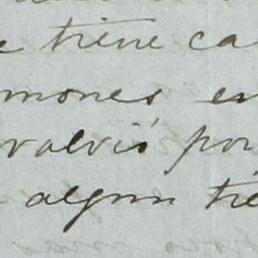 e tiene ca
mones en
volvió por
algun tie